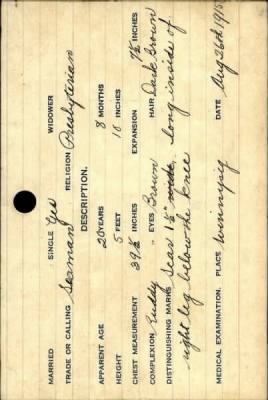 MARRIED SINGLE Yes WIDOWER
TRADE OR CALLING RELIGION Presbyterian
DESCRIPTION.
APPARENT AGE 20 YEARS 8 MONTHS
HEIGHT 5 FEET 10 INCHES
CHEST MEASUREMENT 39½ INCHES EXPANSION INCHES
COMPLEXION Ruddy EYES Brown HAIR Dark Brown
DISTINGUISHING MARKS Scar 1½" long inside of
right leg below the knee
MEDICAL EXAMINATION. PLACE Winnipeg DATE Aug 26th 1915